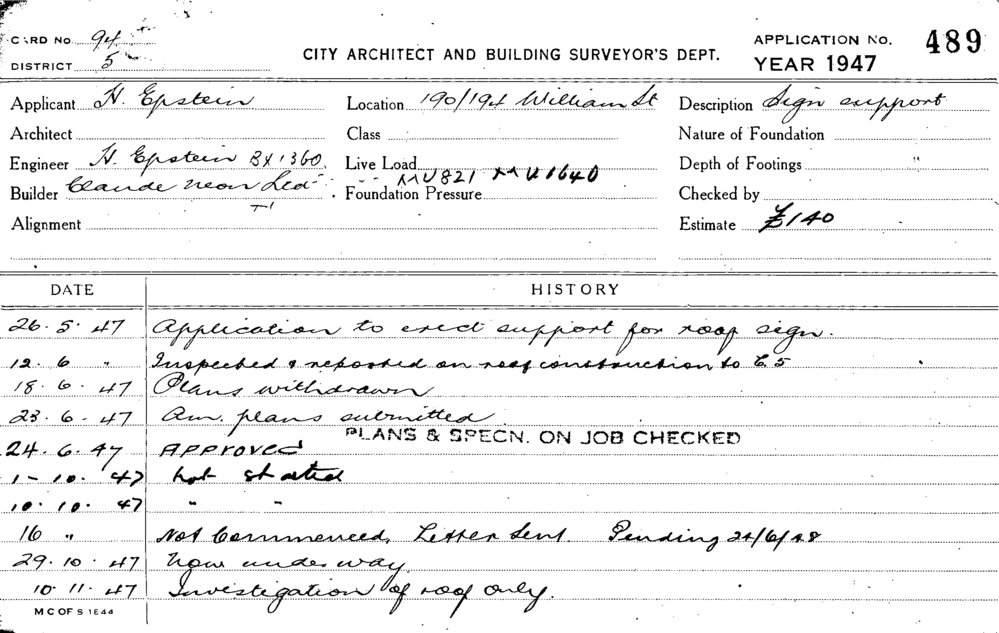 CARD No. 94 CITY ARCHITECT AND BUILDING SURVEYOR'S DEPT. APPLICATION No. 489
DISTRICT 5 YEAR 1947
Applicant H. Epstein Location 190/194 William St Description Sign support
Architect Class Nature of Foundation
Engineer H. Epstein BX1360. Live Load Depth of Footings "
Builder Claude Neon Led Foundation Pressure MU821 MU1640 Checked by
Alignment Estimate £140
DATE HISTORY
26.5.47 Application to erect support for roof sign.
12.6 " Inspected & reported on roof construction to C.5
18.6.47 Plans withdrawn
23.6.47 Am. plans submitted
PLANS & SPECN. ON JOB CHECKED
24.6.47 APPROVED
1-10.47 not started
10.10.47 " "
16 " Not Commenced, Letter Sent. Pending 24/6/48
29.10.47 Now under way.
10.11.47 Investigation of roof only.
M C OF S 1844